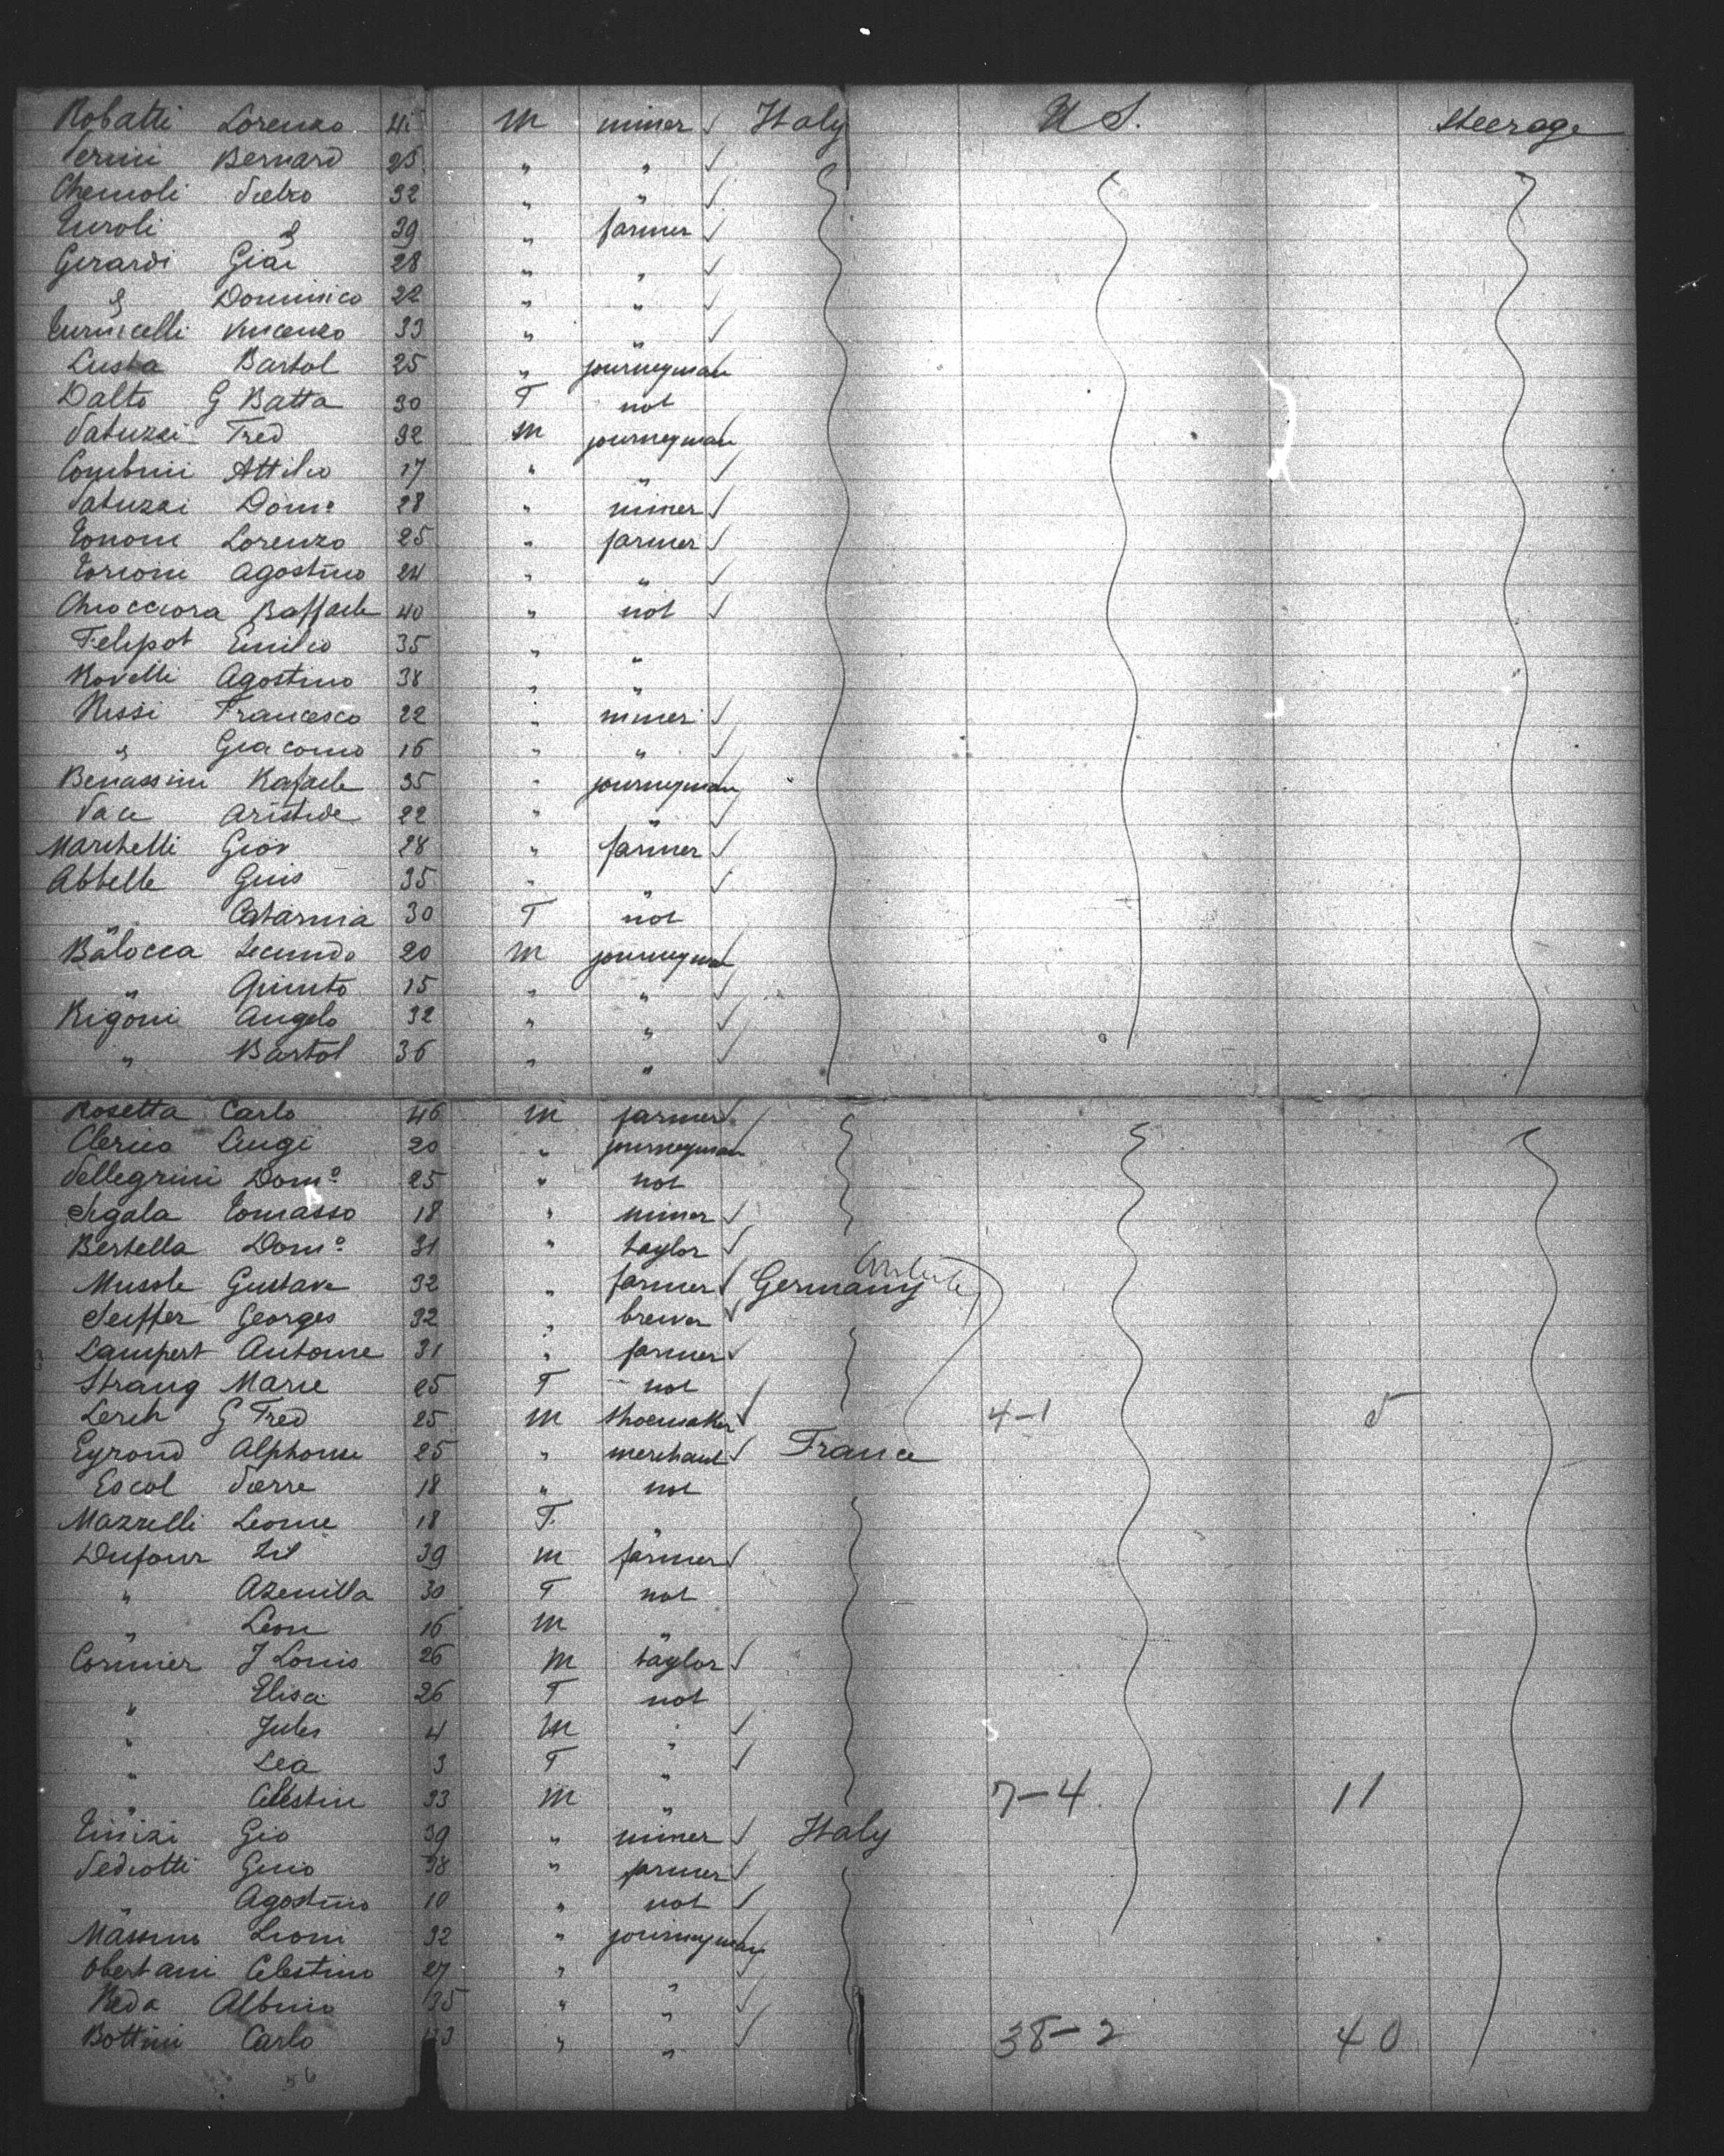 Robatti Lorenzo 45 M miner ✓ Italy U S. Steerage
Perini Bernard 25 " " ✓
Chemoli Pietro 32 " " ✓
Turoli " 39 " farmer ✓
Gerardi Giac 28 " " ✓
" Dominico 22 " " ✓
Turnicelli Vincenzo 33 " " ✓
Lusta Bartol 25 " journeyman ✓
Dalto G Batta 30 F not
Patuzzi Fred 32 M journeyman ✓
Combini Attilio 17 " " ✓
Patuzzi Domo 28 " miner ✓
Tononi Lorenzo 25 " farmer ✓
Torioni Agostino 24 " " ✓
Chiocciora Raffaele 40 " not ✓
Felipot Emilio 35 " "
Rovelli Agostino 38 " "
Rissi Francesco 22 " miner ✓
" Giacomo 16 " " ✓
Benassini Rafaele 35 " journeyman ✓
Pace Aristide 22 " " ✓
Marchelli Giov 28 " farmer ✓
Abbelle Guis 35 " " ✓
" Catarina 30 F not
Balocca Secundo 20 M journeyman ✓
" Quinto 15 " " ✓
Rigoni Angelo 32 " " ✓
" Bartol 36 " " ✓
Rosetta Carlo 46 M farmer ✓
Clerico Luigi 20 " journeyman
Pellegrini Domo 25 " not
Sigala Tomasso 18 " miner ✓
Bertella Domo 31 " taylor ✓
Gustave 32 " farmer ✓ Germany
Seiffer Georges 32 " brewer ✓
Lampert Antoine 31 " farmer ✓
Strang Marie 25 F not
Lerch G Fred 25 M shoemaker ✓ 4-1 5
Eyrond Alphonse 25 " merchant ✓ France
Escol Pierre 18 " not
Mazzelli Leonie 18 F "
Dufour Zil 39 M farmer ✓
" Azemilla 30 F not
" Leon 16 M "
Cormier J Louis 26 M taylor ✓
" Elisa 26 F not
" Jules 4 M " ✓
" Lea 3 F " ✓
" Celestin 33 M " 7-4 11
Tinizi Gio 39 " miner ✓ Italy
Pediotti Guio 38 " farmer ✓
" Agostino 10 " not ✓
Massimo Lioni 32 " journeyman
Obertani Celestino 27 " " ✓
Reda Albino 35 " " ✓
Bottini Carlo 33 " " ✓ 38-2 40
56